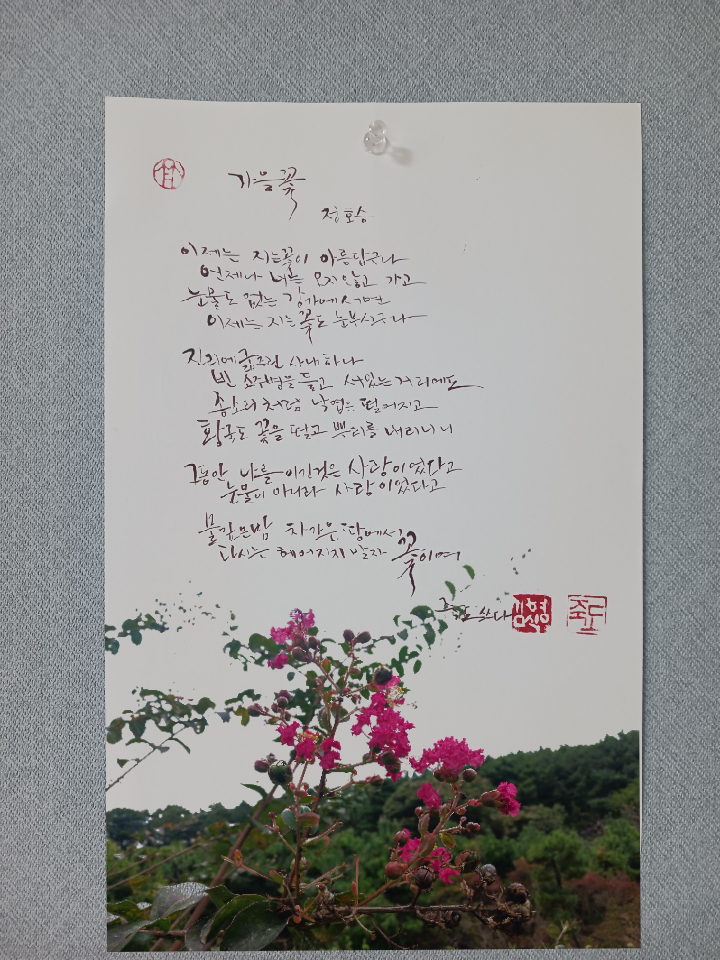 가을꽃
정호승
이제는 지는 꽃이 아름답구나
언제나 너는 오지 않고 가고
눈물도 없는 강가에 서면
이제는 지는 꽃도 눈부시구나
진리에 굶주린 사내 하나
빈 소주병을 들고 서있는 거리에도
종소리처럼 낙엽은 떨어지고
황국도 꽃을 떨고 뿌리를 내리나니
그동안 나를 이긴 것은 사랑이었다고
눈물이 아니라 사랑이었다고
물 깊은 밤 차가운 땅에서
다시는 헤어지지 말자 꽃이여
쓰다